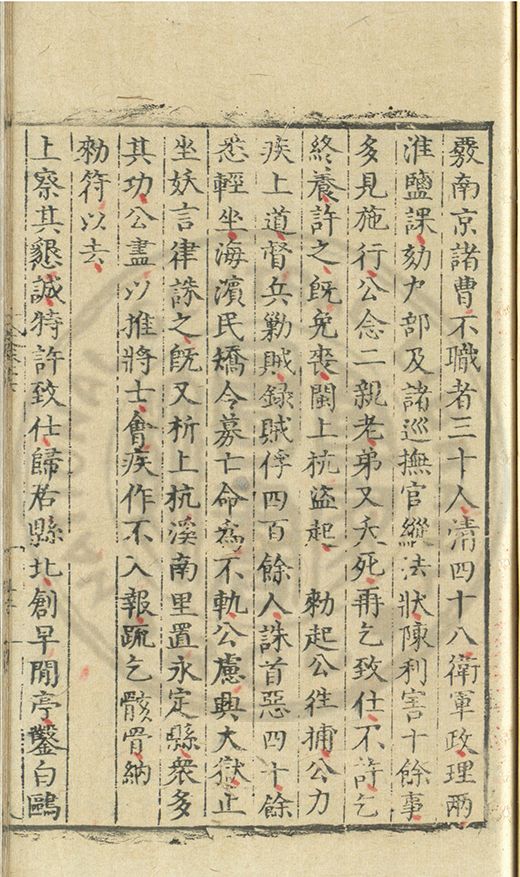 發南京諸曹不職者三十人清四十八衛軍政理兩
淮鹽課劾戶部及諸巡撫官縱法狀陳利害十餘事
多見施行公念二親老弟又夭死再乞致仕不許乞
終養許之既免喪閩上杭盜起　勅起公往捕公力
疾上道督兵勦賊錄賊俘四百餘人誅首惡四十餘
悉輕坐海濱民矯令募亡命爲不軌公慮興大獄止
坐妖言律誅之既又析上杭溪南里置永定縣衆多
其功公盡以推將士會疾作不入報疏乞骸骨納
勅符以去
上察其懇誠特許致仕歸名縣北創早閒亭鑿白鷗